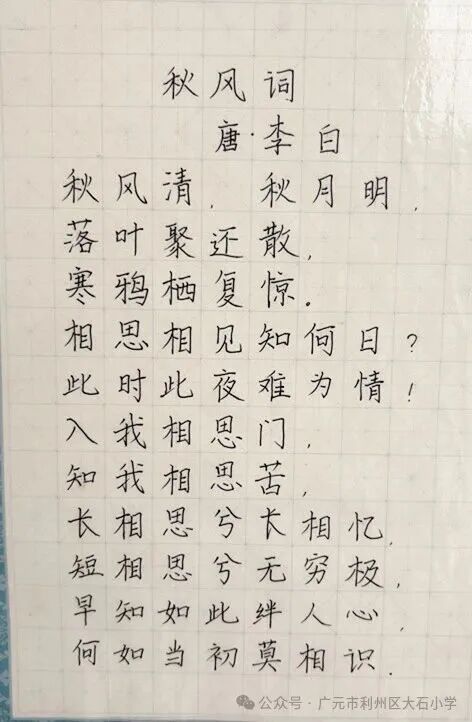 秋风词
唐·李白
秋风清,秋月明,
落叶聚还散,
寒鸦栖复惊.
相思相见知何日?
此时此夜难为情!
入我相思门,
知我相思苦,
长相思兮长相忆,
短相思兮无穷极,
早知如此绊人心,
何如当初莫相识.
公众号·广元市利州区大石小学